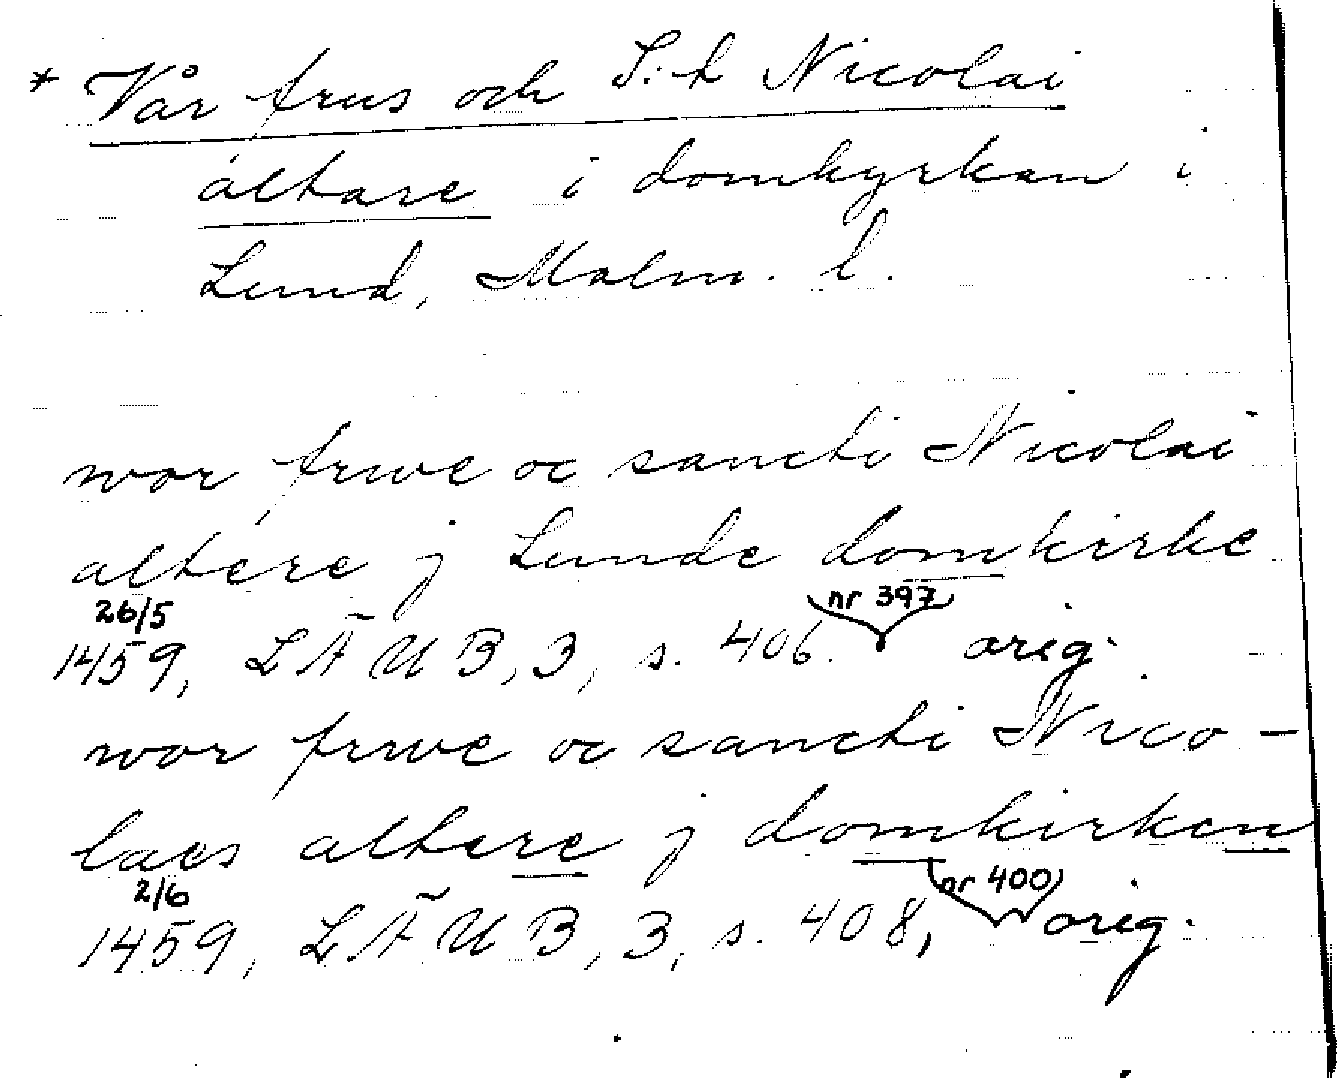 * Vår frus och S:t Nicolai
altare i domkyrkan i
Lund, Malm. l.
wor frwe oc sancti Nicolai
altere j Lunde domkirke
26/5 nr 397
1459, LÄUB, 3, s. 406. orig.
wor frwe oc sancti Nico-
laes altere j domkirken
2/6 nr 400
1459, LÄUB, 3, s. 408, orig.